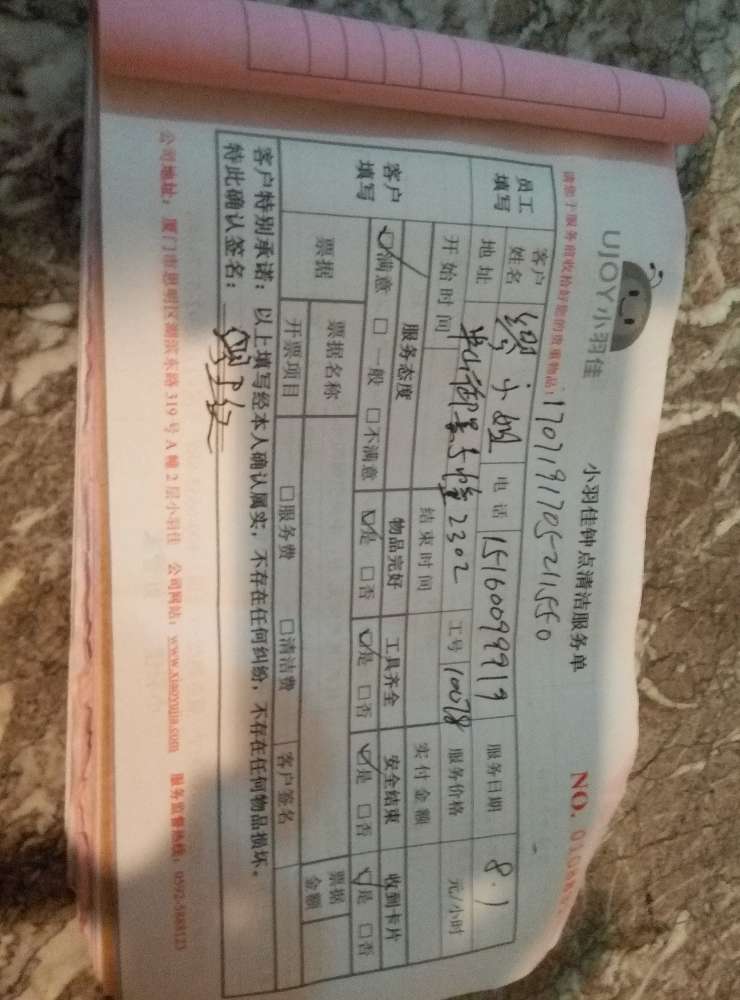 UJOY小羽佳
小羽佳钟点清洁服务单
NO.
请您于服务前收拾好您的贵重物品!
170719170521550
员工填写 客户姓名 缪小姐 电话 15160099919 服务日期 8.1
地址 2302 工号 10078 服务价格 元/小时
开始时间 结束时间 实付金额
客户填写 服务态度 物品完好 工具齐全 安全结束 收到卡片
☑满意 □一般 □不满意 ☑是 □否 ☑是 □否 ☑是 □否 ☑是 □否
票据 票据名称 票据金额
开票项目 □服务费 □清洁费 客户签名
客户特别承诺：以上填写经本人确认属实，不存在任何纠纷，不存在任何物品损坏。
特此确认签名：
公司地址：厦门市思明区湖滨东路319号A幢2层小羽佳 公司网站：www.xiaoyujia.com 服务监督热线：0592-5888123